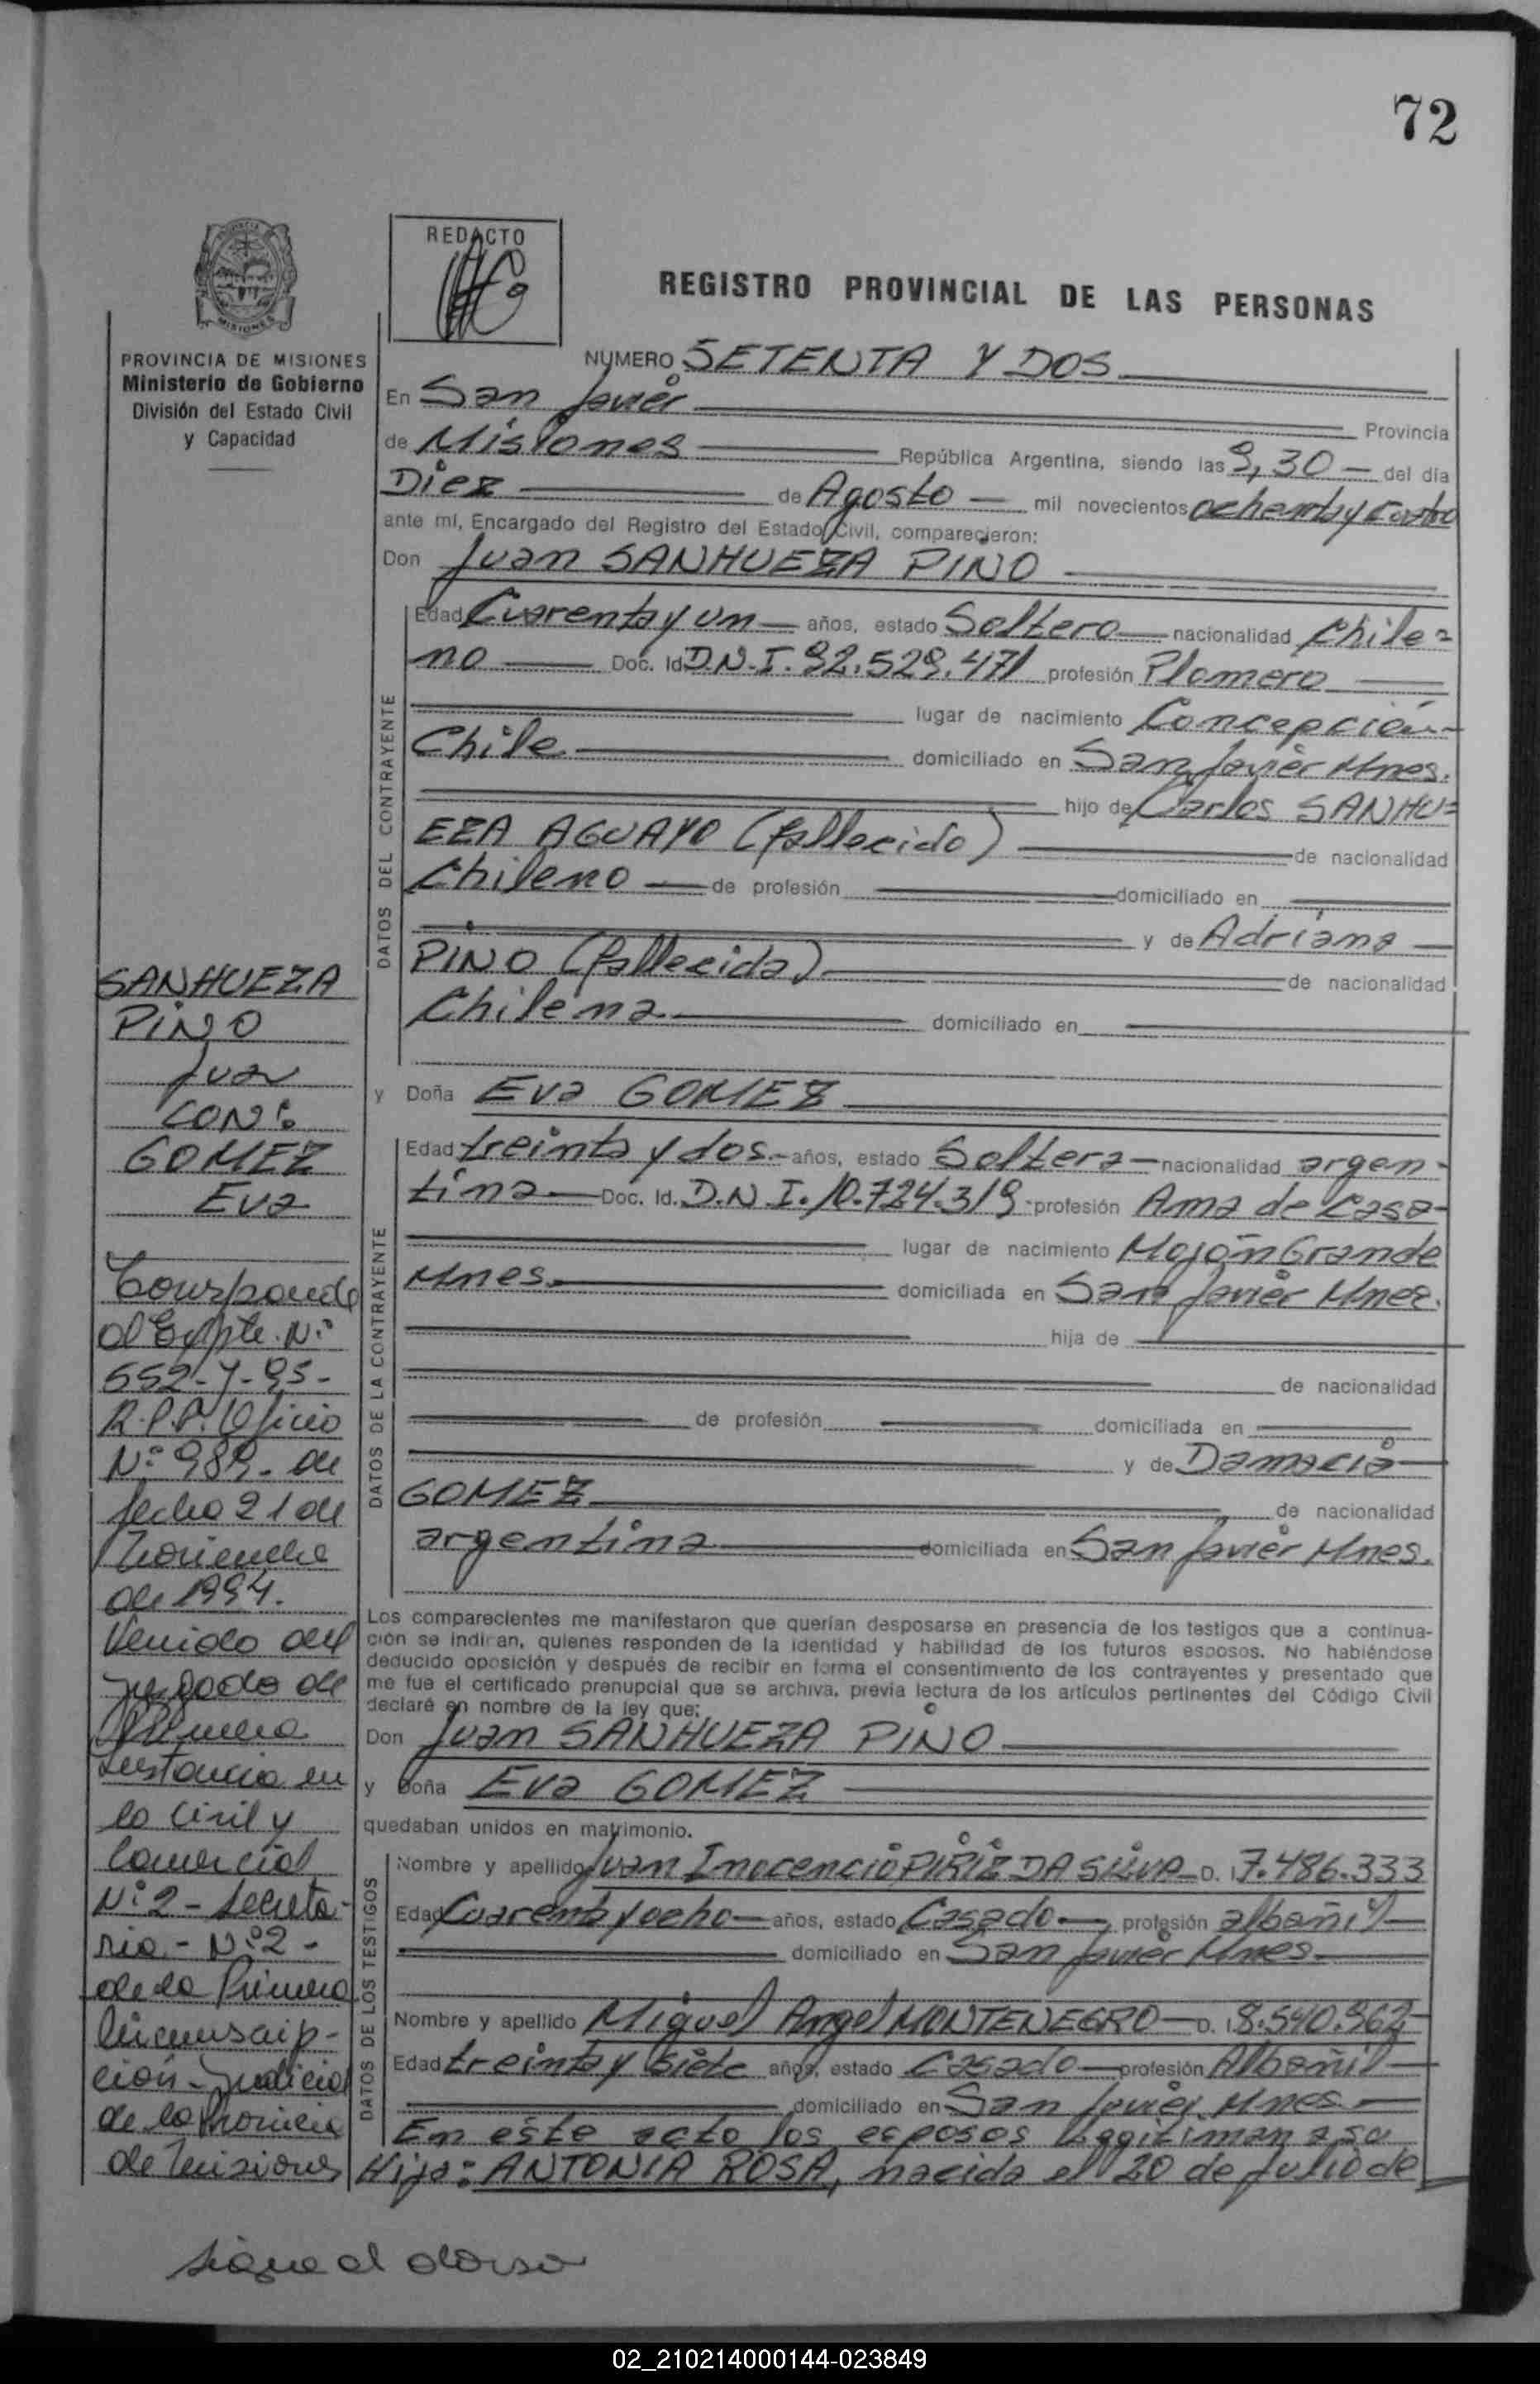 72
REDACTO
REGISTRO PROVINCIAL DE LAS PERSONAS
MISIONES
PROVINCIA DE MISIONES
Ministerio de Gobierno
División del Estado Civil
y Capacidad
NUMERO SETENTA Y DOS
En San Javier Provincia
de Misiones República Argentina, siendo las 9,30 del día
Diez de Agosto mil novecientos ochenta y cuatro
ante mí, Encargado del Registro del Estado Civil, comparecieron:
Don Juan SANHUEZA PINO
DATOS DEL CONTRAYENTE
Edad Cuarenta y un años, estado Soltero nacionalidad Chile=
no Doc. Id. D.N.I. 92.529.471 profesión Plomero
lugar de nacimiento Concepción-
Chile domiciliado en San Javier Mnes.
hijo de Carlos SANHU=
EZA AGUAYO (fallecido) de nacionalidad
Chileno de profesión domiciliado en
y de Adriana
PINO (fallecida) de nacionalidad
Chilena domiciliado en
y Doña Eva GOMEZ
DATOS DE LA CONTRAYENTE
Edad treinta y dos años, estado Soltera nacionalidad argen-
tina Doc. Id. D.N.I. 10.724.319 profesión Ama de Casa
lugar de nacimiento Mojón Grande
Mnes. domiciliada en San Javier Mnes.
hija de
de nacionalidad
de profesión domiciliada en
y de Damacia
GOMEZ de nacionalidad
argentina domiciliada en San Javier Mnes.
Los comparecientes me manifestaron que querían desposarse en presencia de los testigos que a continua-
ción se indican, quienes responden de la identidad y habilidad de los futuros esposos. No habiéndose
deducido oposición y después de recibir en forma el consentimiento de los contrayentes y presentado que
me fue el certificado prenupcial que se archiva, previa lectura de los artículos pertinentes del Código Civil
declaré en nombre de la ley que:
Don Juan SANHUEZA PINO
y Doña Eva GOMEZ
quedaban unidos en matrimonio.
DATOS DE LOS TESTIGOS
Nombre y apellido Juan Inocencio PIRIZ DA SILVA D. I 7.486.333
Edad Cuarenta y ocho años, estado Casado profesión albañil
domiciliado en San Javier Mnes.
Nombre y apellido Miguel Angel MONTENEGRO D. I 8.540.962
Edad treinta y siete años, estado Casado profesión Albañil
domiciliado en San Javier Mnes.
En este acto los esposos leggitiman a su
Hija: ANTONIA ROSA, nacida el 20 de Julio de
SANHUEZA
PINO
Juan
CON:
GOMEZ
Eva
Corresponde
al Expte. N:
552-Y-95-
R.P.P. Oficio
N: 989- de
fecha 21 de
Noviembre
de 1994.
Venido del
Juzgado de
Primera
Instancia en
lo Civil y
Comercial
N: 2 - Secreta-
ria - N: 2 -
de la Primera
Circunscrip-
ción - Judicial
de la Provincia
de Misiones
sigue al dorso
02_210214000144-023849